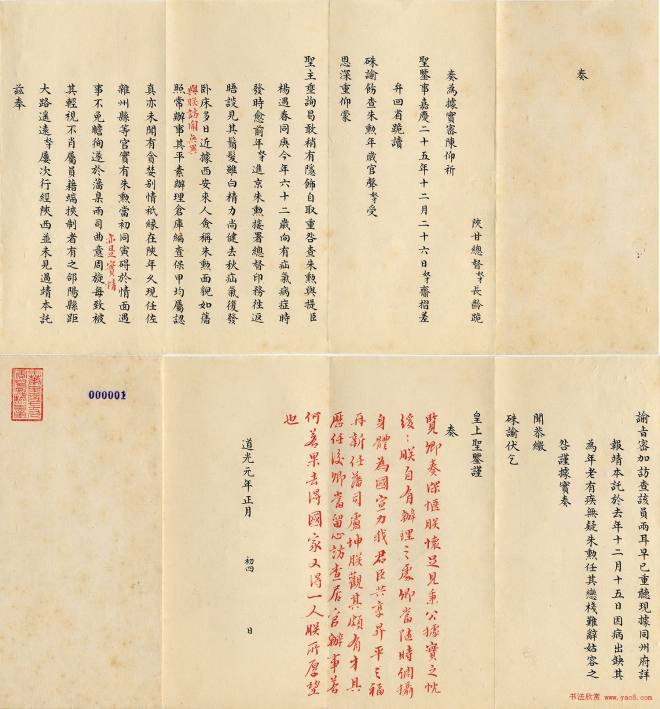 奏
陝甘總督奴才長齡跪
奏為據實密陳仰祈
聖鑒事嘉慶二十五年十二月二十六日奴才齎摺差
弁回省跪讀
硃諭飭查朱勳年歲官聲奴才受
恩深重仰蒙
聖主垂詢曷敢稍有隱飾自取重咎查朱勳與提臣
楊遇春同庚今年六十二歲向有疝氣病症時
發時愈前年奴才進京朱勳接署總督印務往返
晤談見其鬚髮雖白精力尚健去秋疝氣復發
臥床多日近據西安來人僉稱朱勳面貌如舊
與朕訪聞無異
照常辦事其平素辦理倉庫編查保甲均屬認
真亦未聞有貪婪別情祇緣在陝年久現任佐
雜州縣等官實有朱勳當初同寅礙於情面遇
事不免瞻徇遂於藩臬兩司曲意周旋每致被
亦是實情
其輕視不肖屬員藉端挾制者有之郃陽縣距
大路遙遠奴才屢次行經陝西並未見過靖本託
茲奉
諭旨密加訪查該員兩耳早已重聽現據同州府詳
報靖本託於去年十二月十五日因病出缺其
為年老有疾無疑朱勳任其戀棧難辭姑容之
咎謹據實奏
聞恭繳
硃諭伏乞
皇上聖鑒謹
奏
覽卿奏深愜朕懷足見秉公據實之忱
緩緩朕自有辦理之處卿當隨時調攝
身體為國宣力我君臣共享昇平之福
再新任藩司盧坤朕觀其頗有才具
歷任後卿當留心訪查居官辦事若
何若果去得國家又得一人朕所厚望
也
道光元年正月 初四 日
000001
书法欣赏 www.yac8.com